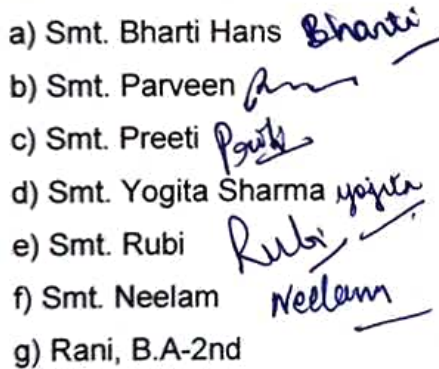 a) Smt. Bharti Hans Bharti
b) Smt. Parveen
c) Smt. Preeti Preeti
d) Smt. Yogita Sharma yogita
e) Smt. Rubi Rubi
f) Smt. Neelam Neelam
g) Rani, B.A-2nd